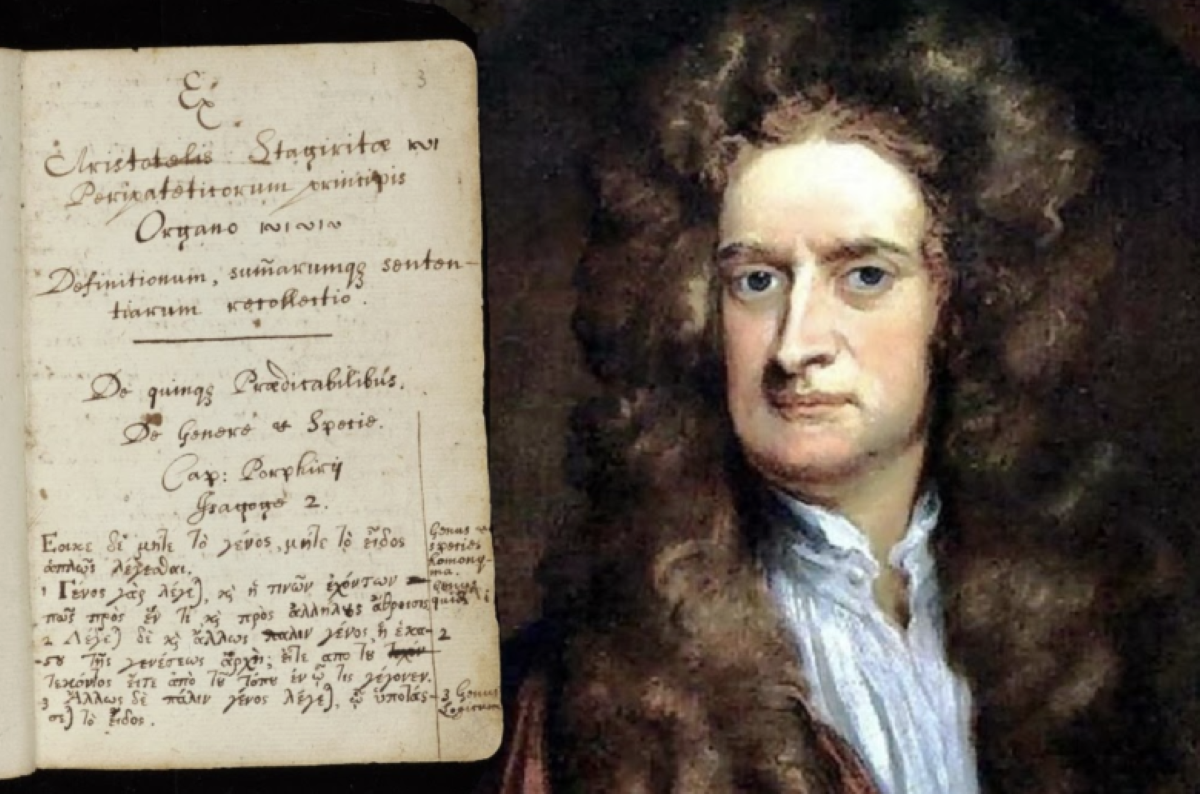 Ex
3
Aristotelis Stagiritæ
Peripateticorum principis
Organo
Definitionum, sum̄arumqȝ senten-
tiarum recollectio.
De quinqȝ Prædicabilibús.
De Genere et Specie.
Cap: Porphirij
Isagoge 2.
Εοικε δὲ μήτε τὸ γένος, μήτε τὸ εἶδος
ἁπλῶς λέγεσθαι.
1 Γένος γὰρ λέγε), κ̀ ἡ τινῶν ἐχόντων
πῶς πρὸς ἕν τι κ̀ πρὸς ἀλλήλȣς ἄθροισις
2 Λέγε) δὲ κ̀ ἄλλως πάλιν γένος ἡ ἑκά-
-ϛȣ τῆς γενέσεως ἀρχὴ; εἴτε απο τȣ
τεκόντος εἴτε ἀπὸ τȣ τόπȣ ἐν ᾧ τις γέγονεν.
3 Ἄλλως δὲ πάλιν γένος λέγε), ᾧ ὑποτάσ-
σε) τὸ εἶδος.
Genus
species
homony-
ma.
2
3 Genus
Logicum